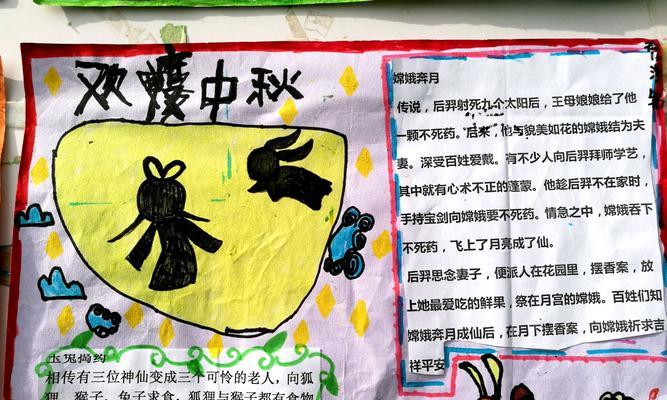 欢度中秋
嫦娥奔月
传说，后羿射死九个太阳后，王母娘娘给了他
一颗不死药。后来，他与貌美如花的嫦娥结为夫
妻。深受百姓爱戴。有不少人向后羿拜师学艺，
其中就有心术不正的蓬蒙。他趁后羿不在家时，
手持宝剑向嫦娥要不死药。情急之中，嫦娥吞下
不死药，飞上了月亮成了仙。
后羿思念妻子，便派人在花园里，摆香案，放
上她最爱吃的鲜果，祭在月宫的嫦娥。百姓们知
嫦娥奔月成仙后，在月下摆香案，向嫦娥祈求吉
祥平安
玉兔捣药
相传有三位神仙变成三个可怜的老人，向狐
狸、猴子、兔子求食，狐狸与猴子都有食物